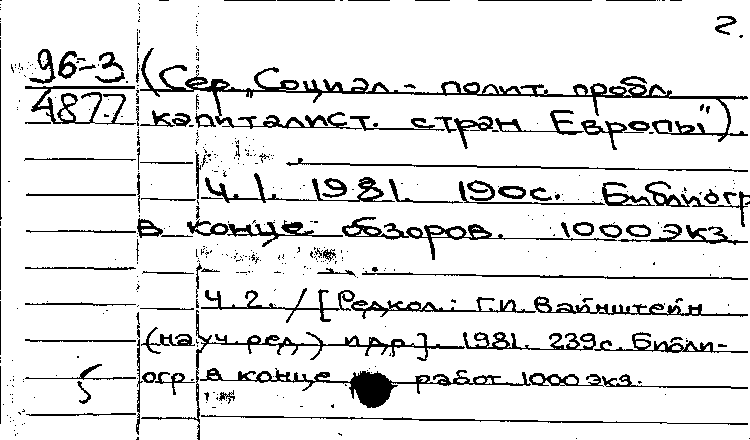 2.
96-3 (Сер. „Социал.- полит. пробл.
4877 капиталист. стран Европы").
Ч.1. 1981. 190с. Библиогр
в конце обзоров. 1000 экз
Ч.2. /[Редкол.: Г.И. Вайнштейн
(науч. ред.) и др.]. 1981. 239с. Библи-
5 огр. в конце работ 1000 экз.